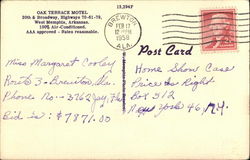 13,2947
OAK TERRACE MOTEL
20th & Broadway, Highways 70-61-79,
West Memphis, Arkansas.
100% Air-Conditioned.
AAA approved - Rates reasonable.
BREWTON
FEB 17
12 PM
1958
ALA.
Post Card
Miss Margaret Cooley
Route 3 - Brewton, Ala.
Phone No - 3762
Bid is: $7871.00
Home Show Case
Price Is Right
Box 312
New York 46, N.Y.